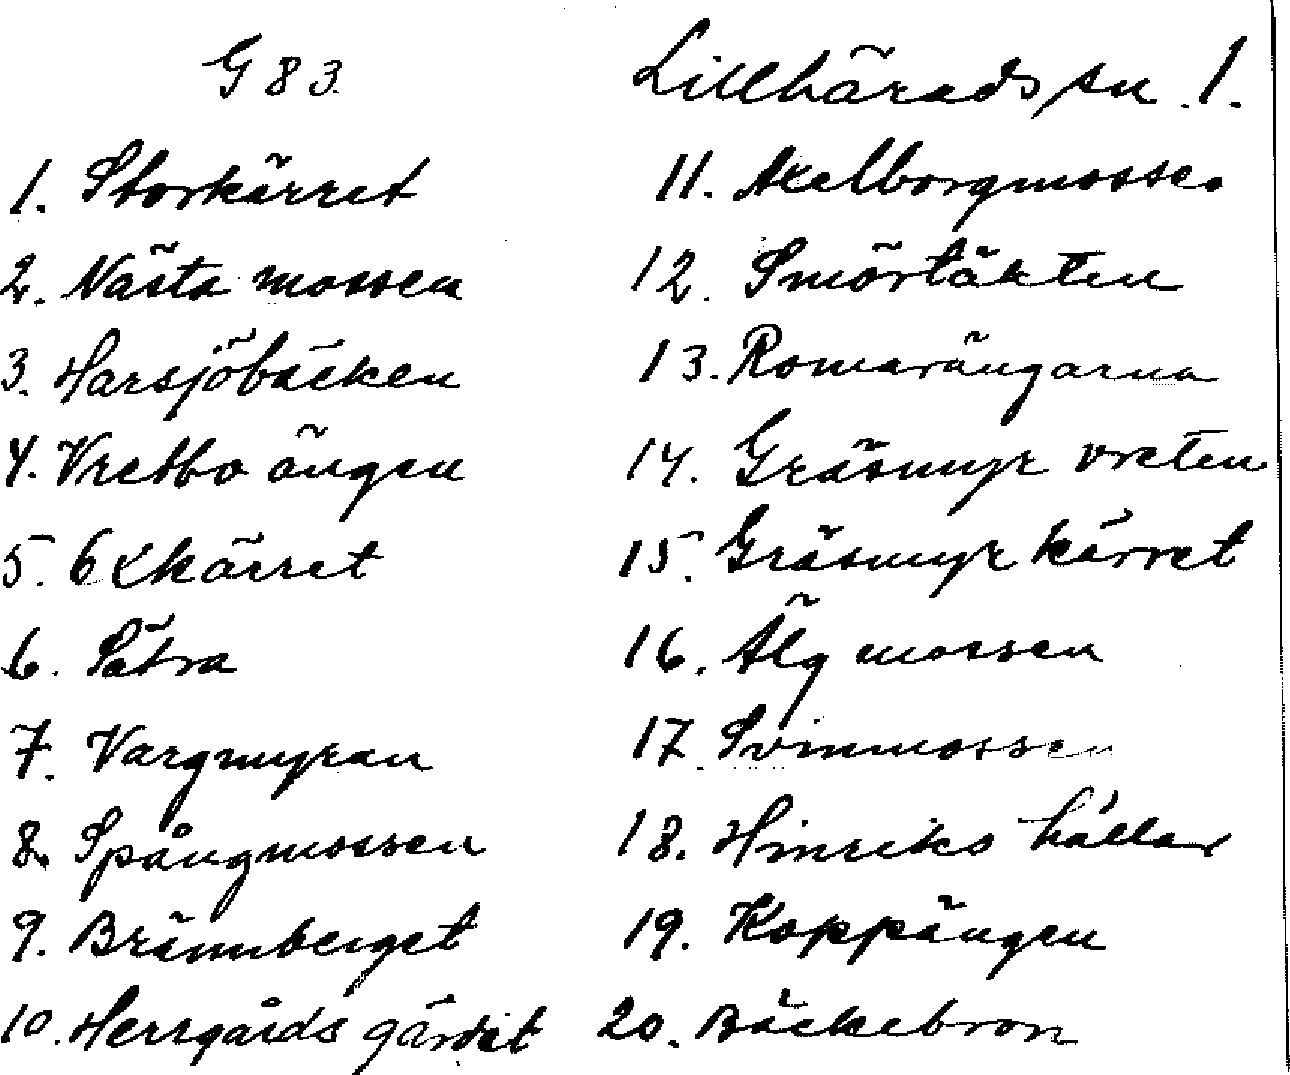 G 83.
Lillhärads sn. 1.
1. Storkärret
2. Nästa mossen
3. Harsjöbäcken
4. Vretbo ängen
5. 6 kkärret
6. Sätra
7. Vargmyran
8. Spångmossen
9. Brännberget
10. Herrgårds gärdet
11. Axelborgmosse.
12. Smörtäkten
13. Romarängarna
14. Gräsmyr vreten
15. Gräsmyr kärret
16. Älg mossen
17. Svinmossen
18. Hinriks hällar
19. Koppängen
20. Bäckebron